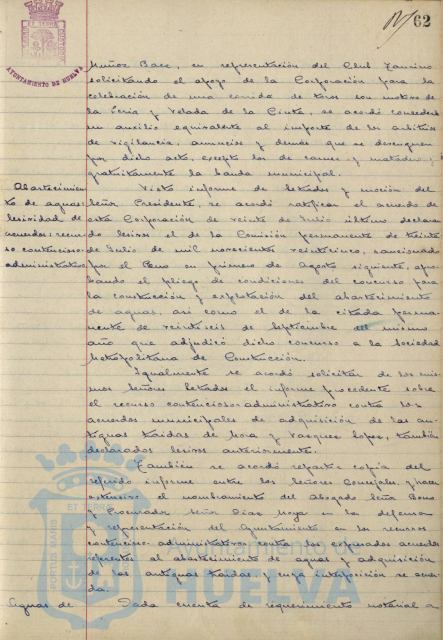 62
AYUNTAMIENTO DE HUELVA
Muñoz Baec, en representación del Club Taurino
solicitando el apoyo de la Corporación para la
celebración de una corrida de toros con motivo de
la Feria y Velada de la Cinta, se acordó concederle
un auxilio equivalente al importe de los arbitrios
de vigilancia, anuncios y demás que se devenguen
por dicho acto, excepto los de carnes y matadero, y
gratuitamente la banda municipal.
Abastecimien
to de aguas:
lesividad de
acuerdos: recur
so contencioso-
administrativo
Visto informe de letrados y moción del
Señor Presidente, se acordó ratificar el acuerdo de
esta Corporación de veinte de Julio último declaran
do lesivos el de la Comisión permanente de treinta
de Julio de mil novecientos veinticinco, sancionado
por el Pleno en primero de Agosto siguiente, apro
bando el pliego de condiciones del concurso para
la construcción y explotación del abastecimiento
de aguas, así como el de la citada perma
nente de veintiseis de Septiembre del mismo
año que adjudicó dicho concurso a la Sociedad
Metropolitana de Construcción.
Igualmente se acordó solicitar de los mis
mos Señores letrados el informe procedente sobre
el recurso contencioso-administrativo contra los
acuerdos municipales de adquisición de las an
tiguas traidas de Mora y Vazquez Lopez, también
declarados lesivos anteriormente.
También se acordó repartir copia del
referido informe entre los Señores Concejales, y hacer
extensivo el nombramiento del Abogado Señor
y Procurador Señor Diaz para la defensa
y representación del Ayuntamiento en los recursos
contencioso-administrativos contra los expresados acuerdos
referentes al abastecimiento de aguas y adquisición
de las antiguas traidas, y cuya interposición se acuer
da.
Aguas de
Dada cuenta de requerimiento notarial a
PORTUS MARIS ET TERRE
Ayuntamiento de
HUELVA